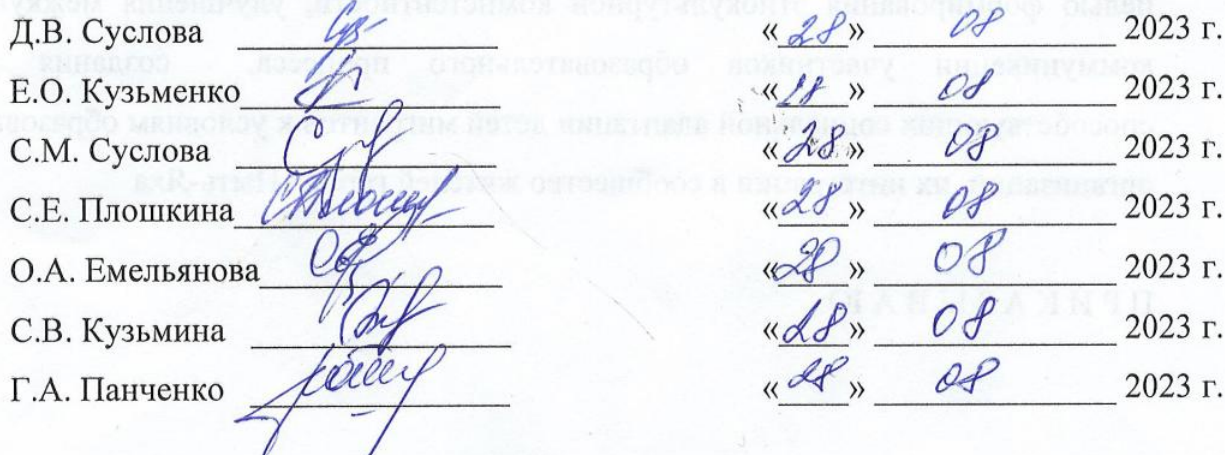 Д.В. Суслова «28» 08 2023 г.
Е.О. Кузьменко «28» 08 2023 г.
С.М. Суслова «28» 08 2023 г.
С.Е. Плошкина «28» 08 2023 г.
О.А. Емельянова «28» 08 2023 г.
С.В. Кузьмина «28» 08 2023 г.
Г.А. Панченко «28» 08 2023 г.